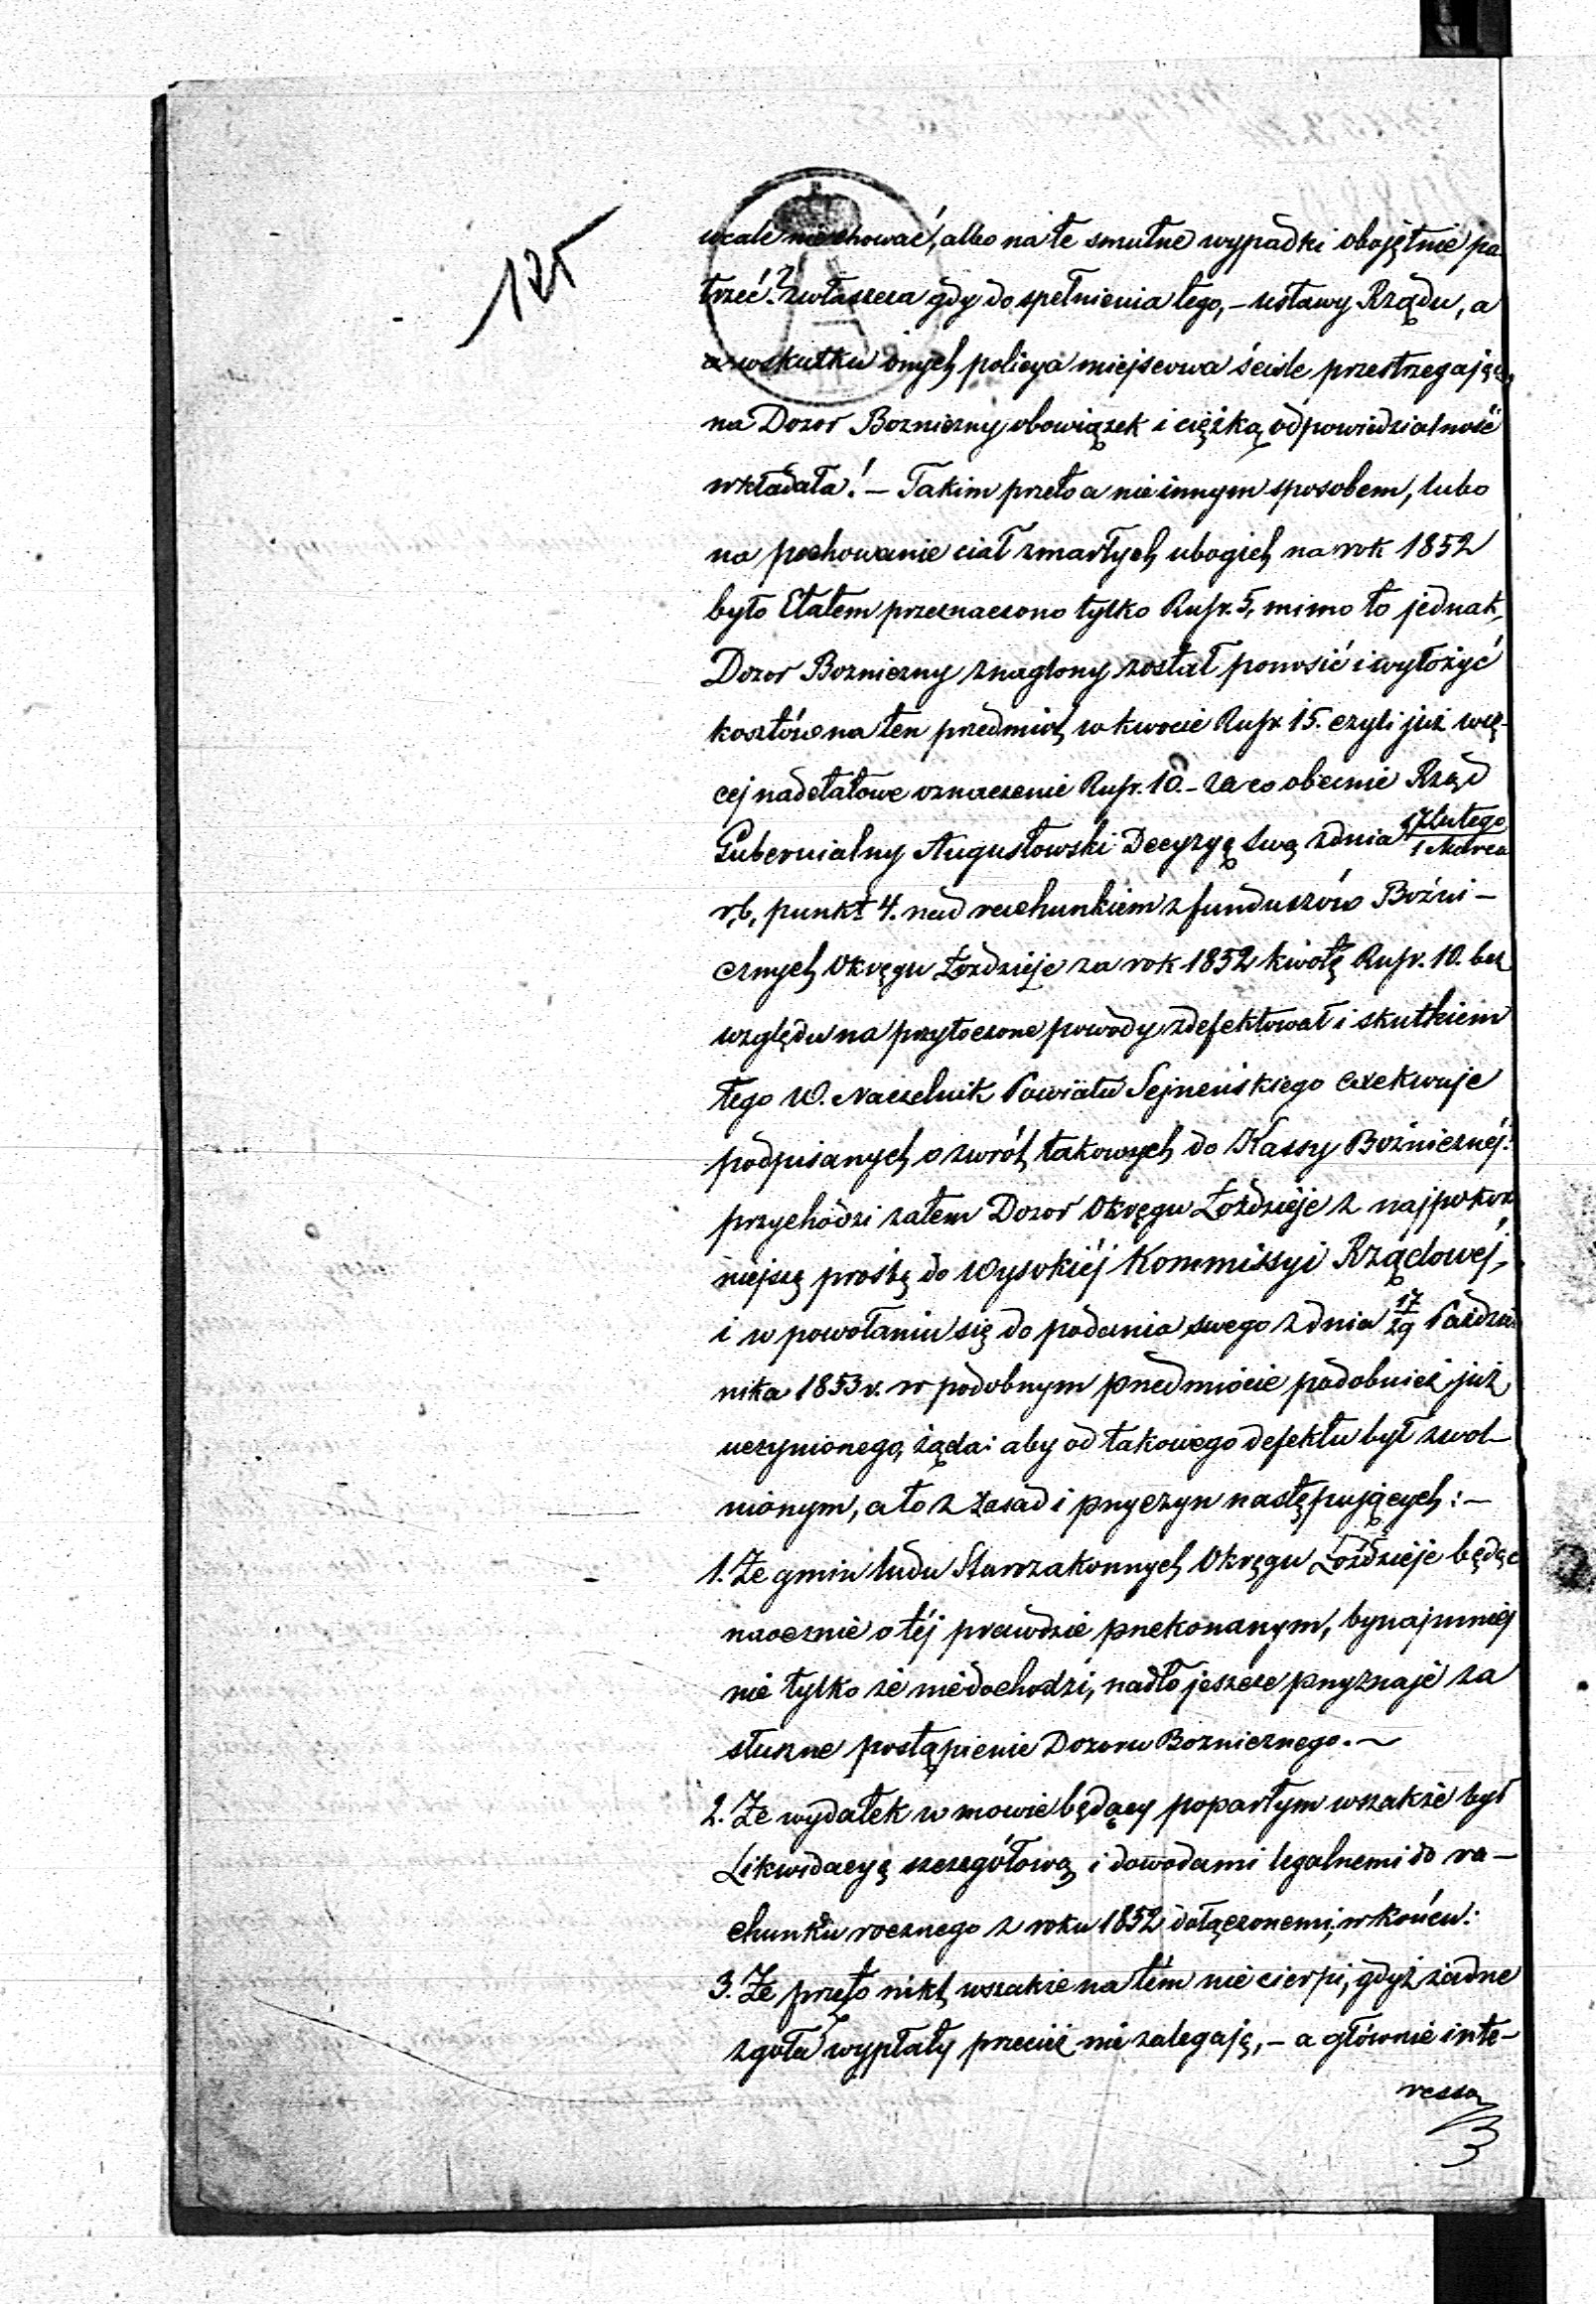 125
wcale niechować, albo na te smutne wypadki obojętnie pa-
trzeć? zwłaszcza gdy do spełnienia tego, – ustawy Rządu, a
a wskutku onych policya miejscowa ściśle przestrzegając,
na Dozor Bozniczny obowiązek i ciężką odpowiedzialność
wkładała! – Takim przeto a nie innym sposobem, lubo
na pochowanie ciał zmarłych ubogich na rok 1852
było Etatem przeznaczono tylko Rusr. 5, mimo to jednak,
Dozor Bozniczny znaglony został ponosić i wyłożyć
kosztów na ten przedmiot w kwocie Rusr 15. czyli już wię-
cej nadetatowe oznaczenie Rusr. 10. – za co obecnie Rząd
Gubernialny Augustowski Decyzyą swą zdnia 17 Lutego / 1 Marca
r,b, punkt 4. nad rachunkiem z funduszów Boźni –
cznych Okręgu Łoździeje za rok 1852 kwotę Rusr. 10. bez
względu na przytoczone powody zdefektował i skutkiem
tego W. Naczelnik Powiatu Sejneńskiego exekwuje
podpisanych o zwrót takowych do Kassy Boźnicznéj!
przychodzi zatem Dozor Okręgu Łoździeje z najpokor
niejszą prośbą do Wysokiéj Kommissyi Rządowéj,
i w powołaniu się do podania swego z dnia 17/29 Paździer
nika 1853 r. w podobnym przedmiocie podobnież już
uczynionego, żąda: aby od takowego defektu był zwol–
nionym, a to z zasad i przyczyn następujących: –
1. Że gmin ludu Starozakonnych Okręgu Łoździeje będąc
naocznie o téj prawdzie przekonanym, bynajmniej
nie tylko że niedochodzi, nadto jeszcze przyznaje za
słuszne postąpienie Dozoru Bozniczego. –
2. Że wydatek w mowie będący popartym wszakże był
Likwidacyą szczegółową i dowodami legalnemi do ra –
chunku rocznego z roku 1852 dołączonemi, w końcu:
3. Że przeto nikt wszakże na tém nie cierpi, gdyż żadne
zgoła wypłaty przecież nie zalegają, – a głównie inte–
ressa